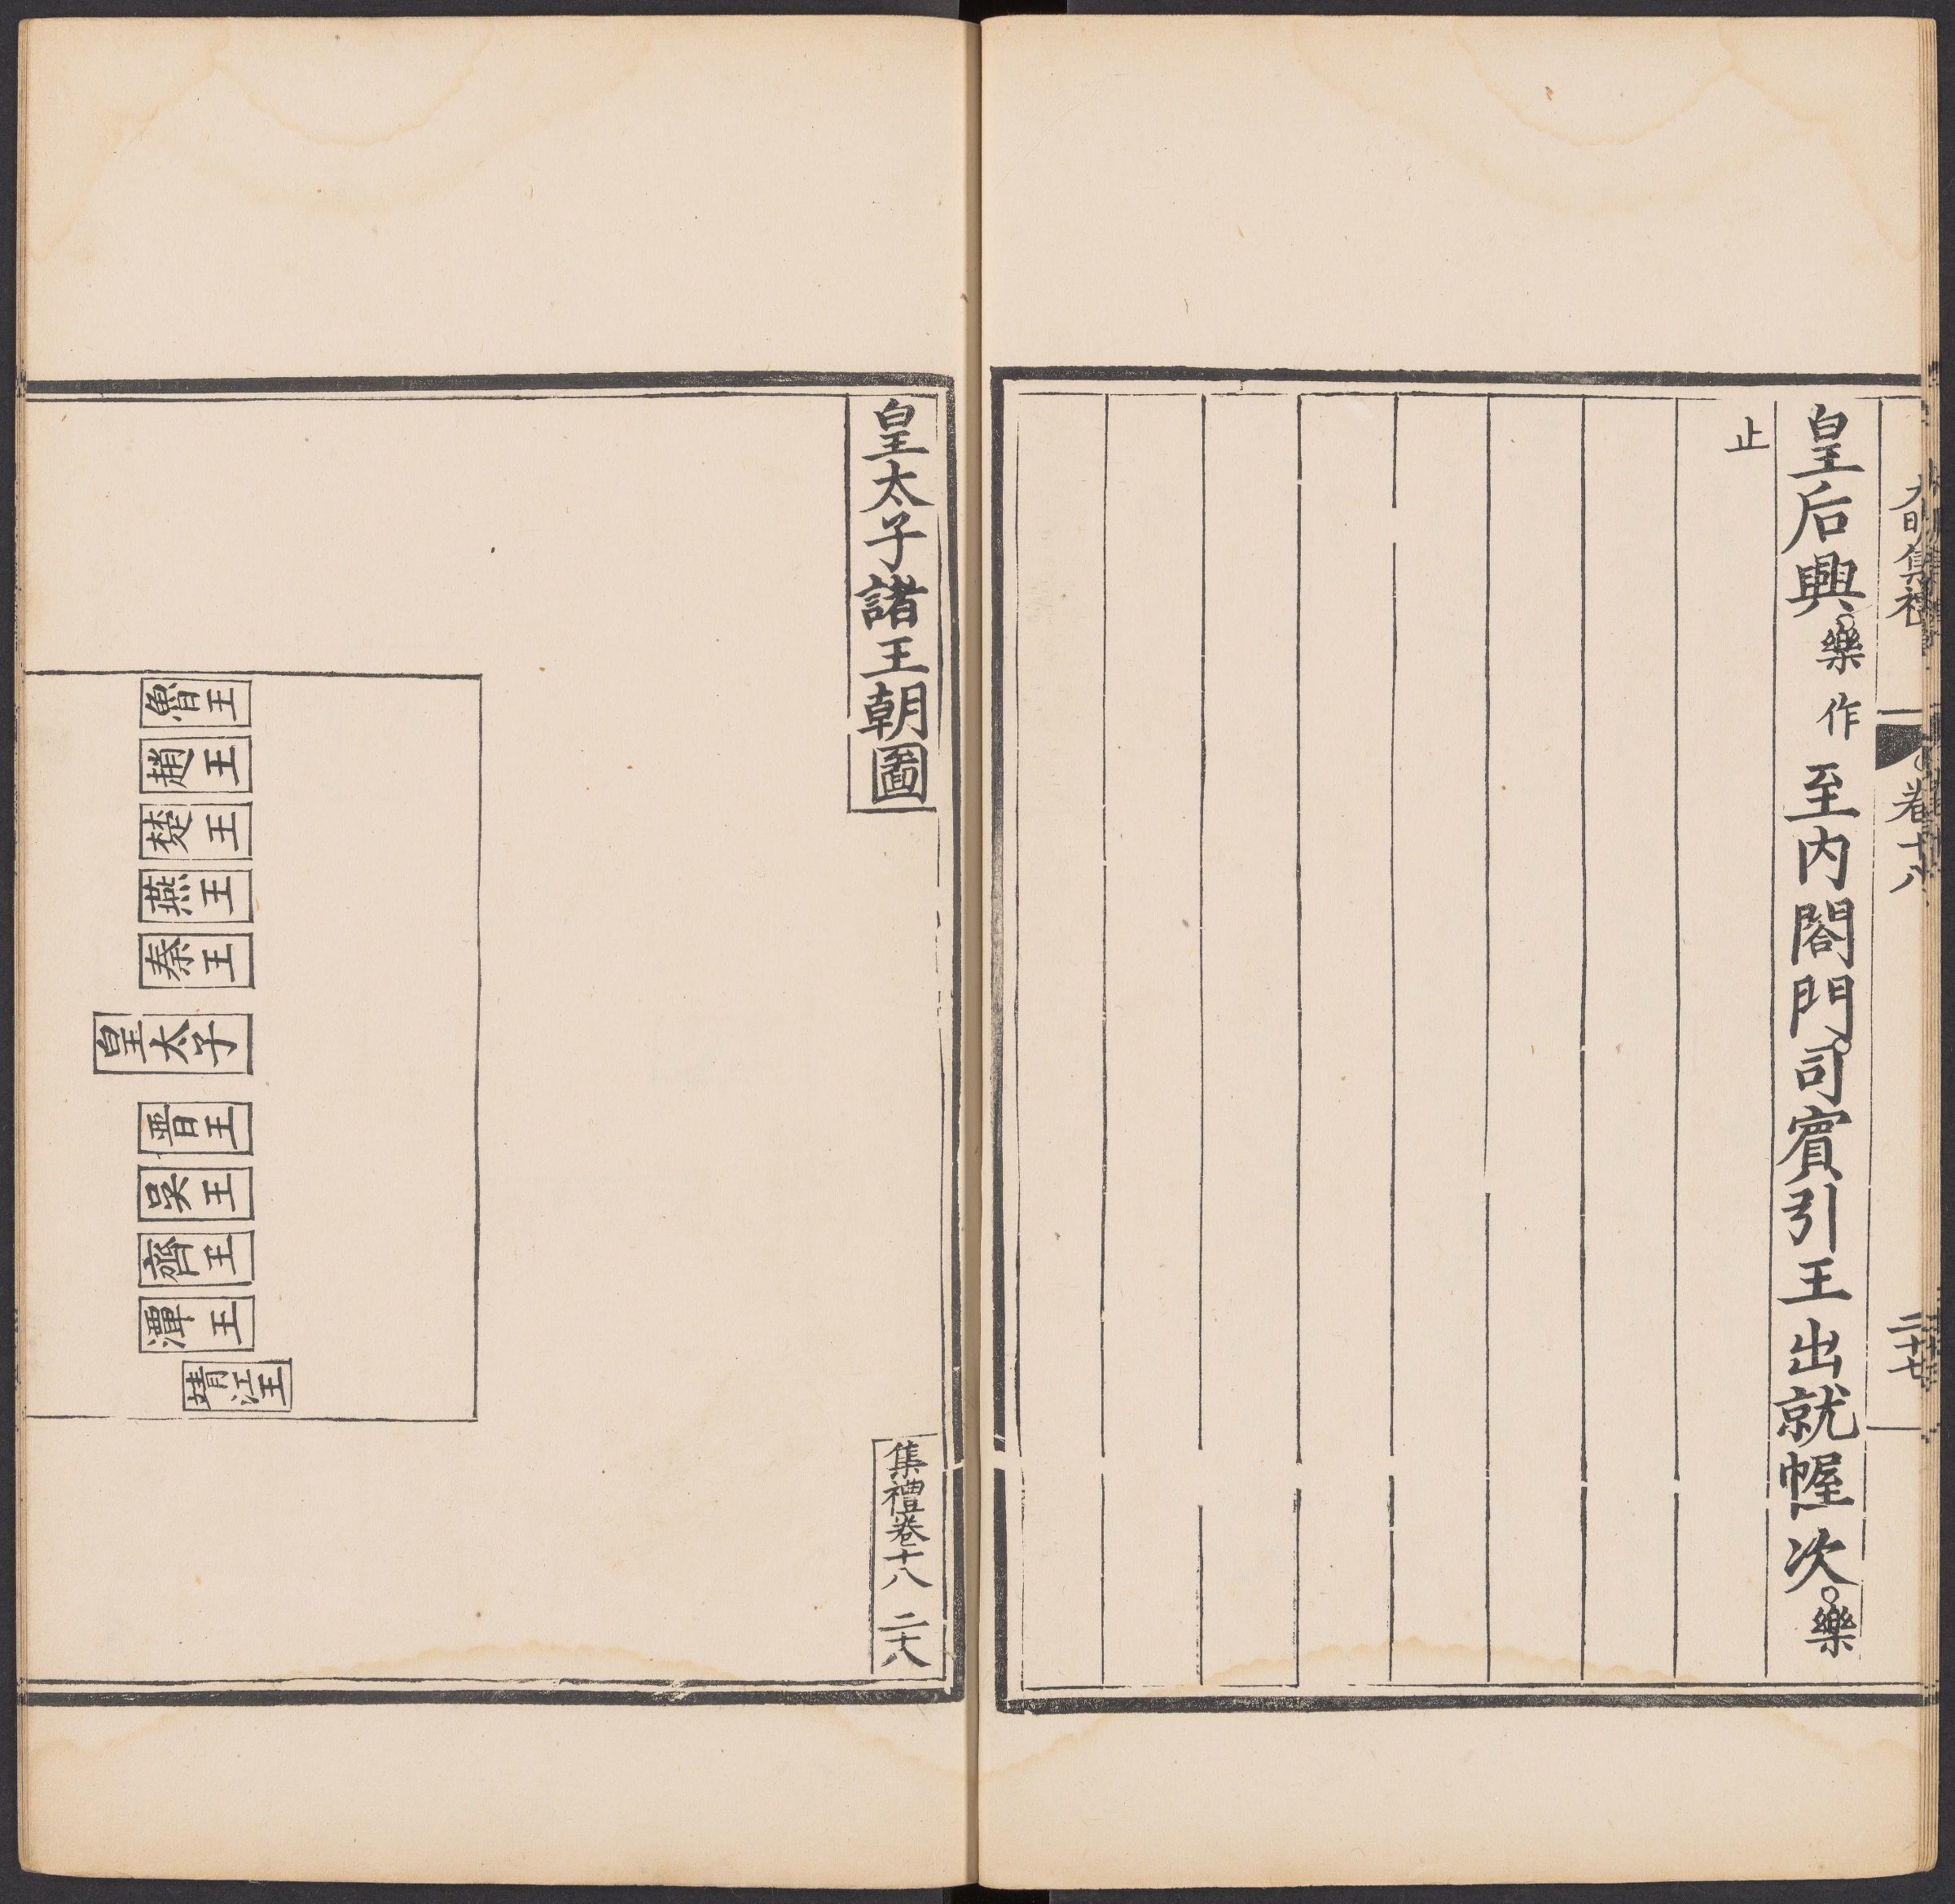 大明集禮 卷十八 二十七
皇后興。樂作至内閤門。司賓引王出就幄次。樂
止
皇太子諸王朝圖
集禮卷十八 二十八
魯王
趙王
楚王
燕王
秦王
皇太子
晋王
吳王
齊王
潭王
靖江王